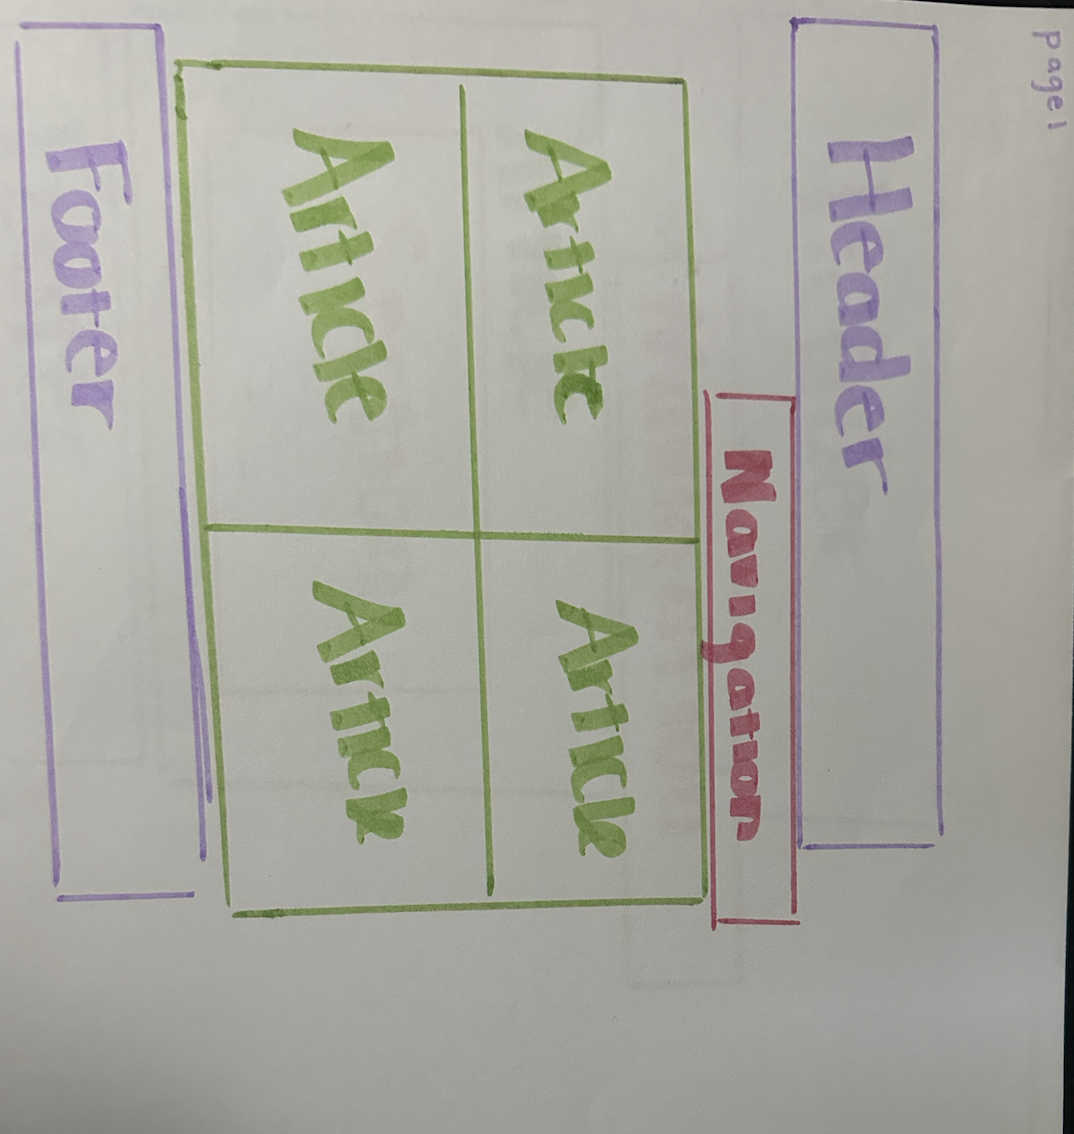 page 1
Header
Navigation
Article Article
Article Article
Footer